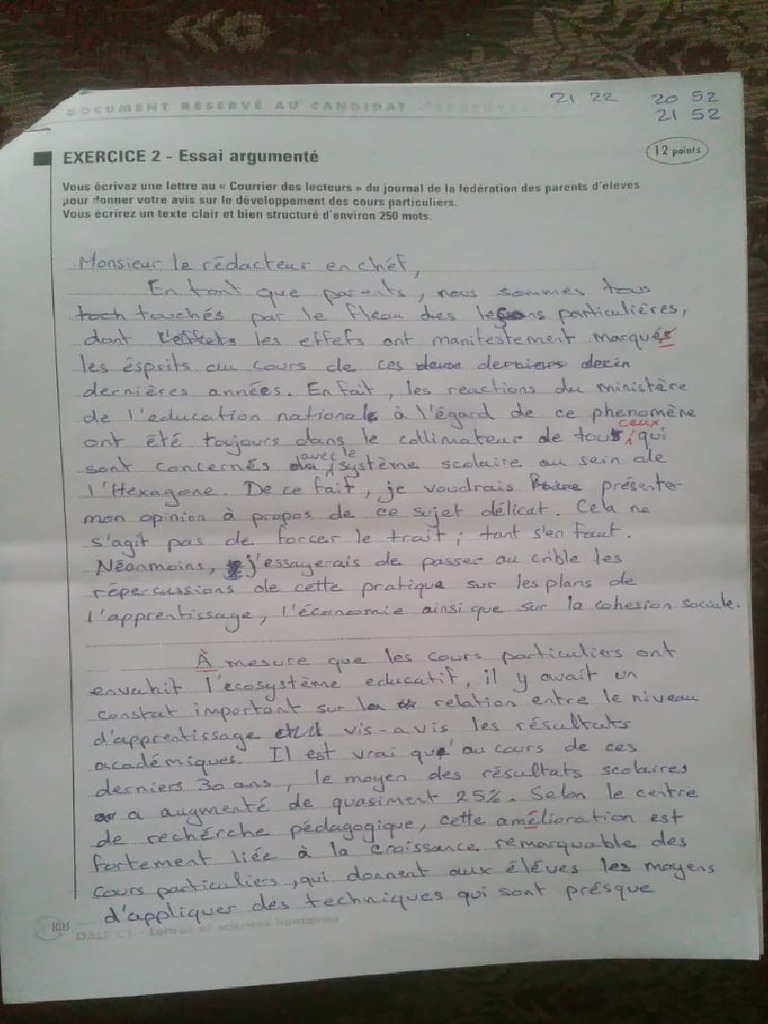 DOCUMENT RÉSERVÉ AU CANDIDAT
21 22 20 52
21 52
EXERCICE 2 - Essai argumenté
12 points
Vous écrivez une lettre au « Courrier des lecteurs » du journal de la fédération des parents d'élèves
pour donner votre avis sur le développement des cours particuliers.
Vous écrirez un texte clair et bien structuré d'environ 250 mots.
Monsieur le rédacteur en chéf,
En tant que parents, nous sommes tous
touchés par le fleau des leçons particulières,
dont les effefs ont manifestement marqués
les ésprits au cours de ces
dernières années. En fait, les réactions du ministère
de l'education nationale à l'égard de ce phenomène
ont été toujours dans le collimateur de tous ceux qui
sont concernés avec le système scolaire au sein de
l'Hexagone. De ce fait, je voudrais présenter
mon opinion à propos de ce sujet délicat. Cela ne
s'agit pas de forcer le trait ; tant s'en faut.
Néanmoins, j'essayerais de passer au crible les
répercussions de cette pratique sur les plans de
l'apprentissage, l'économie ainsi que sur la cohesion sociale.
À mesure que les cours particuliers ont
envahit l'ecosystème educatif, il y avait un
constat important sur la relation entre le niveau
d'apprentissage vis-a-vis les résultats
académiques. Il est vrai que au cours de ces
derniers 30 ans, le moyen des résultats scolaires
a augmenté de quasiment 25%. Selon le centre
de recherche pédagogique, cette amélioration est
fortement liée à la croissance remarquable des
cours particuliers, qui donnent aux élèves les moyens
d'appliquer des techniques qui sont présque
DALF C1 - Lettres et sciences humaines